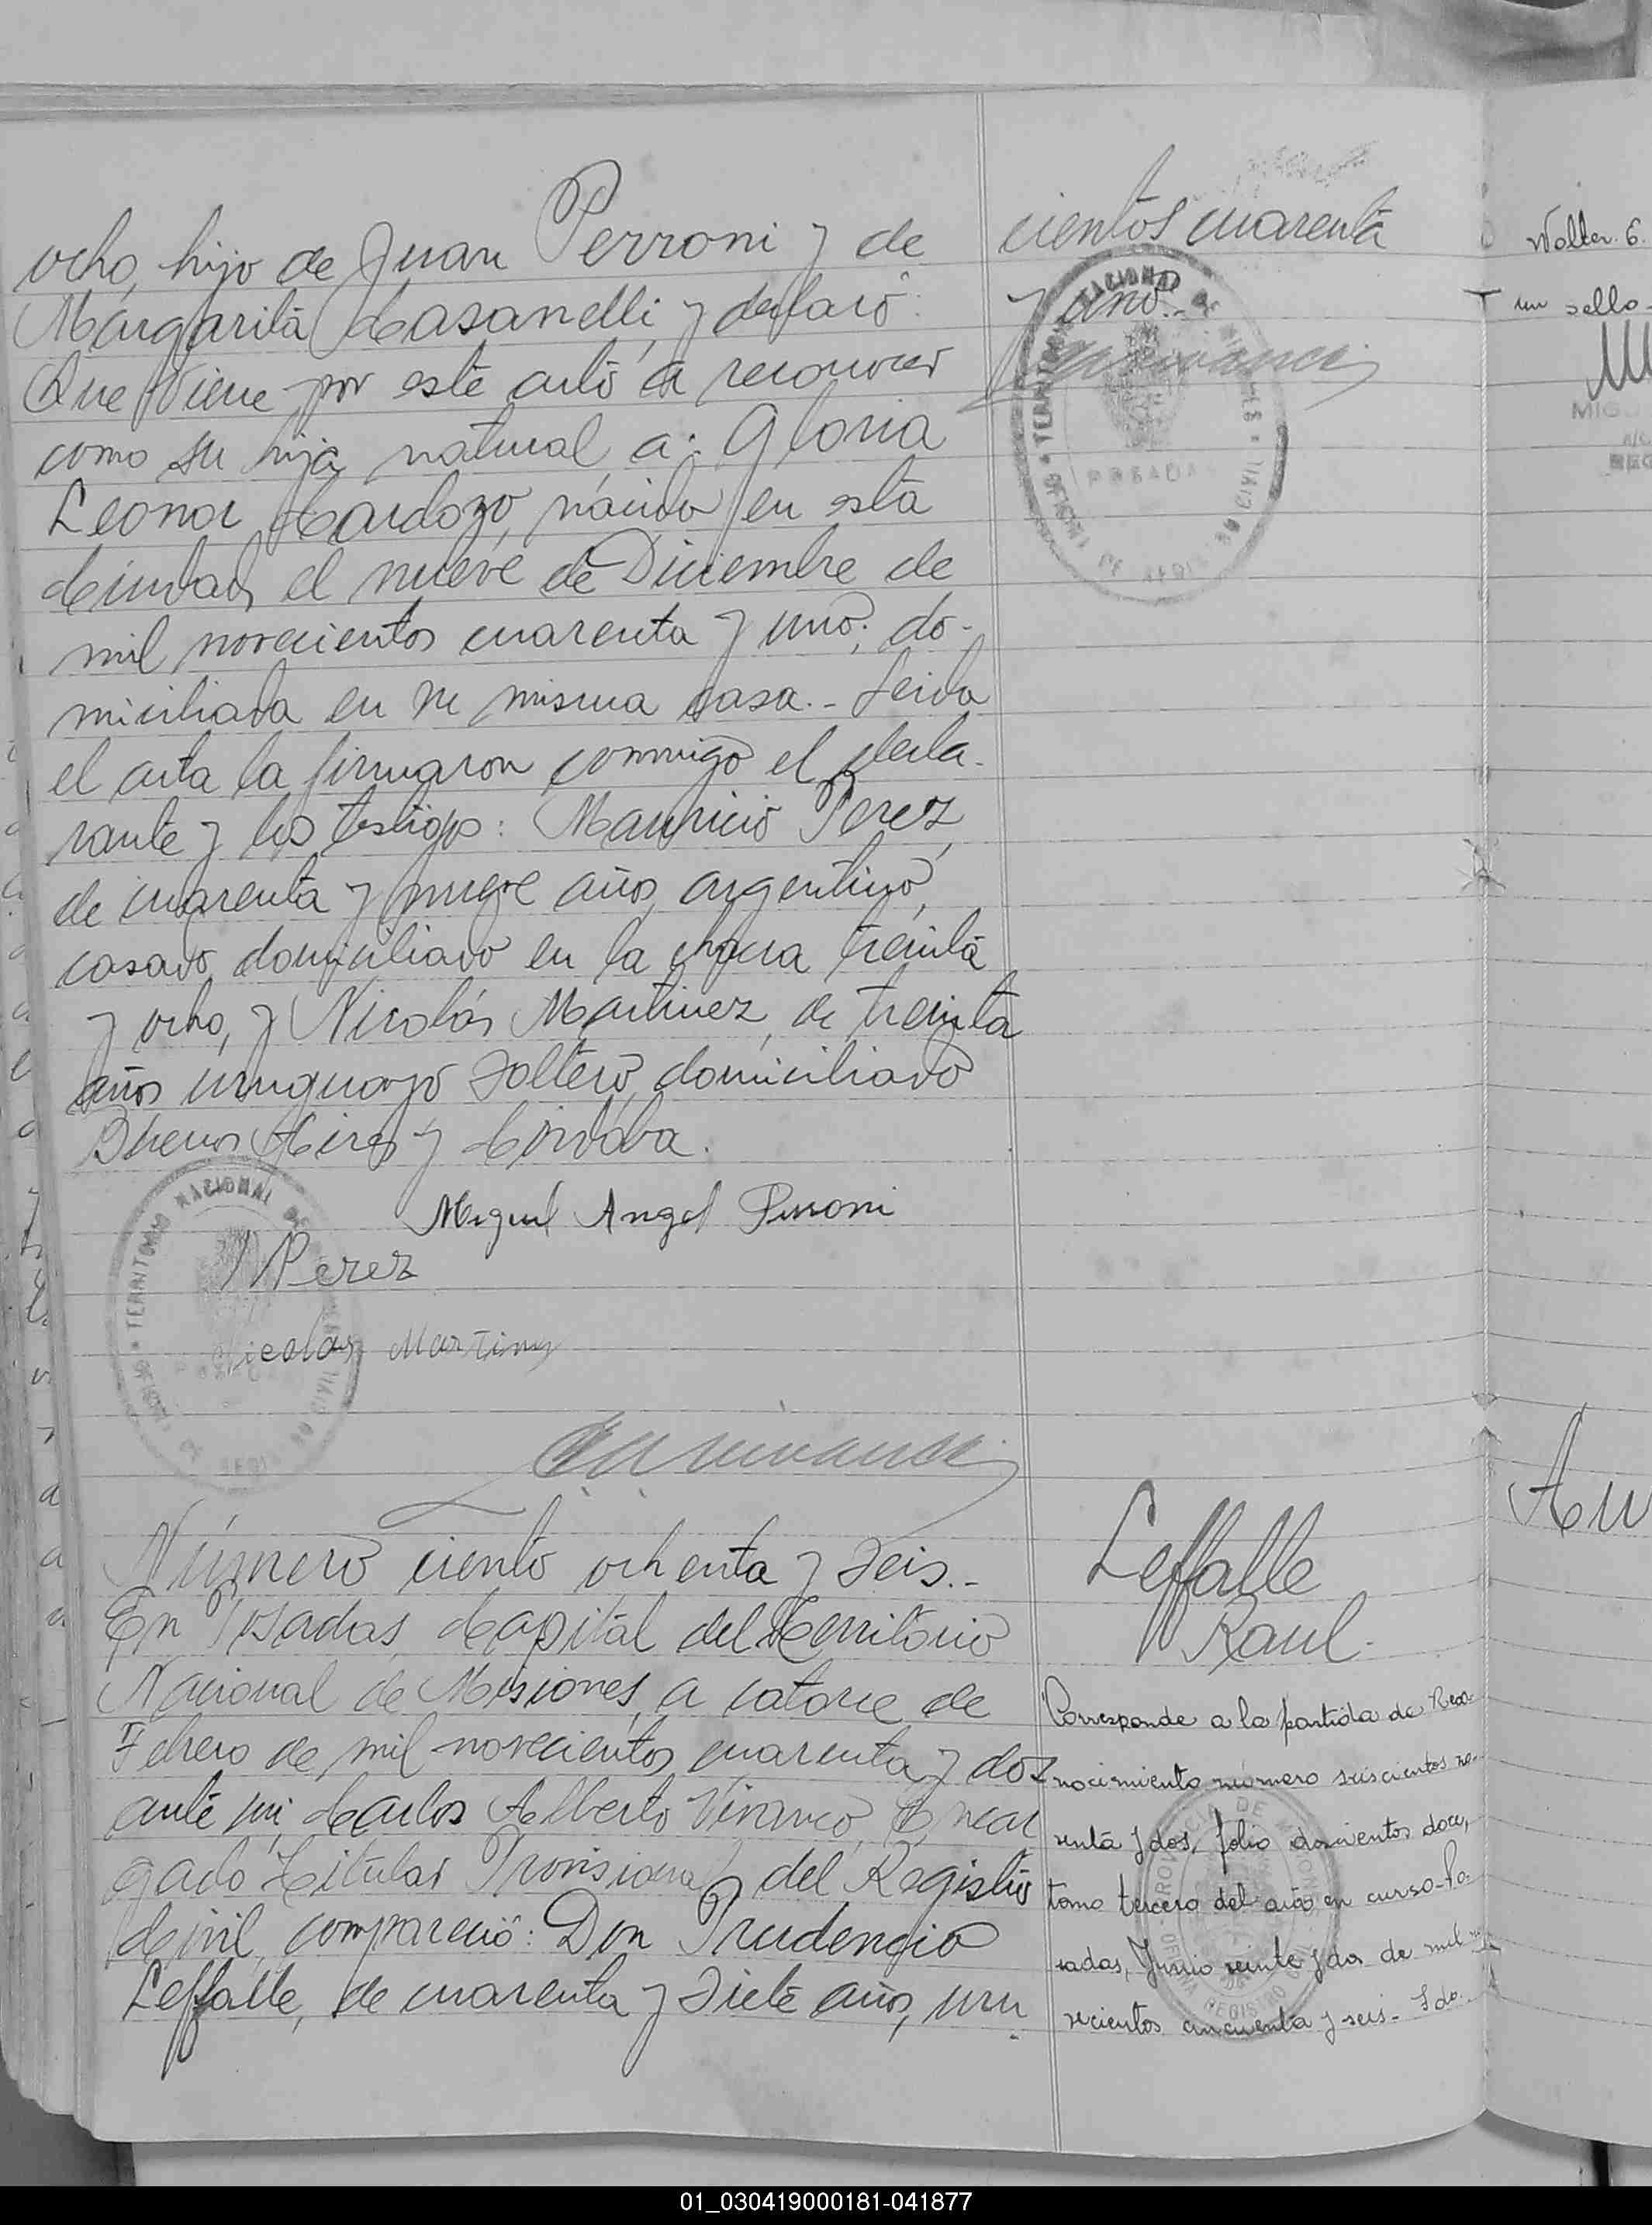 ocho, hijo de Juan Perroni y de
Margarita Casanelli, y declaró:
Que viene por este acto a reconocer
como su hija natural a: Gloria
Leonor Cardozo, nacida en esta
Ciudad, el nueve de Diciembre de
mil novecientos cuarenta y uno; do-
miciliada en su misma casa.- Leida
el acta la firmaron conmigo el decla-
rante y los testigos: Mauricio Perez,
de cuarenta y nueve años, argentino,
casado, domiciliado en la chacra treinta
y ocho, y Nicolás Martinez, de treinta
años, uruguayo soltero, domiciliado
Buenos Aires y Córdova.
Miguel Angel Perroni
Perez
Nicolas Martinez
TERRITORIO NACIONAL DE
Número ciento ochenta y seis.-
En Posadas, Capital del Territorio
Nacional de Misiones, a catorce de
Febrero de mil novecientos cuarenta y dos
ante mi, Carlos Alberto Vivanco, Encar
gado Titular Provisional del Registro
Civil, compareció: Don Prudencio
Leffalle, de cuarenta y siete años, uru
cientos cuarenta
y uno.-
TERRITORIO NACIONAL DE MISIONES
POSADAS
Leffalle
Raul.
Corresponde a la partida de Reco-
nocimiento número seiscientos no-
venta y dos, folio doscientos doce,
tomo tercero del año en curso- Po-
sadas, Junio veinte y dos de mil no-
vecientos cincuenta y seis- Fdo.
Walter. G.
un sello-
MIGU
REG
01_030419000181-041877